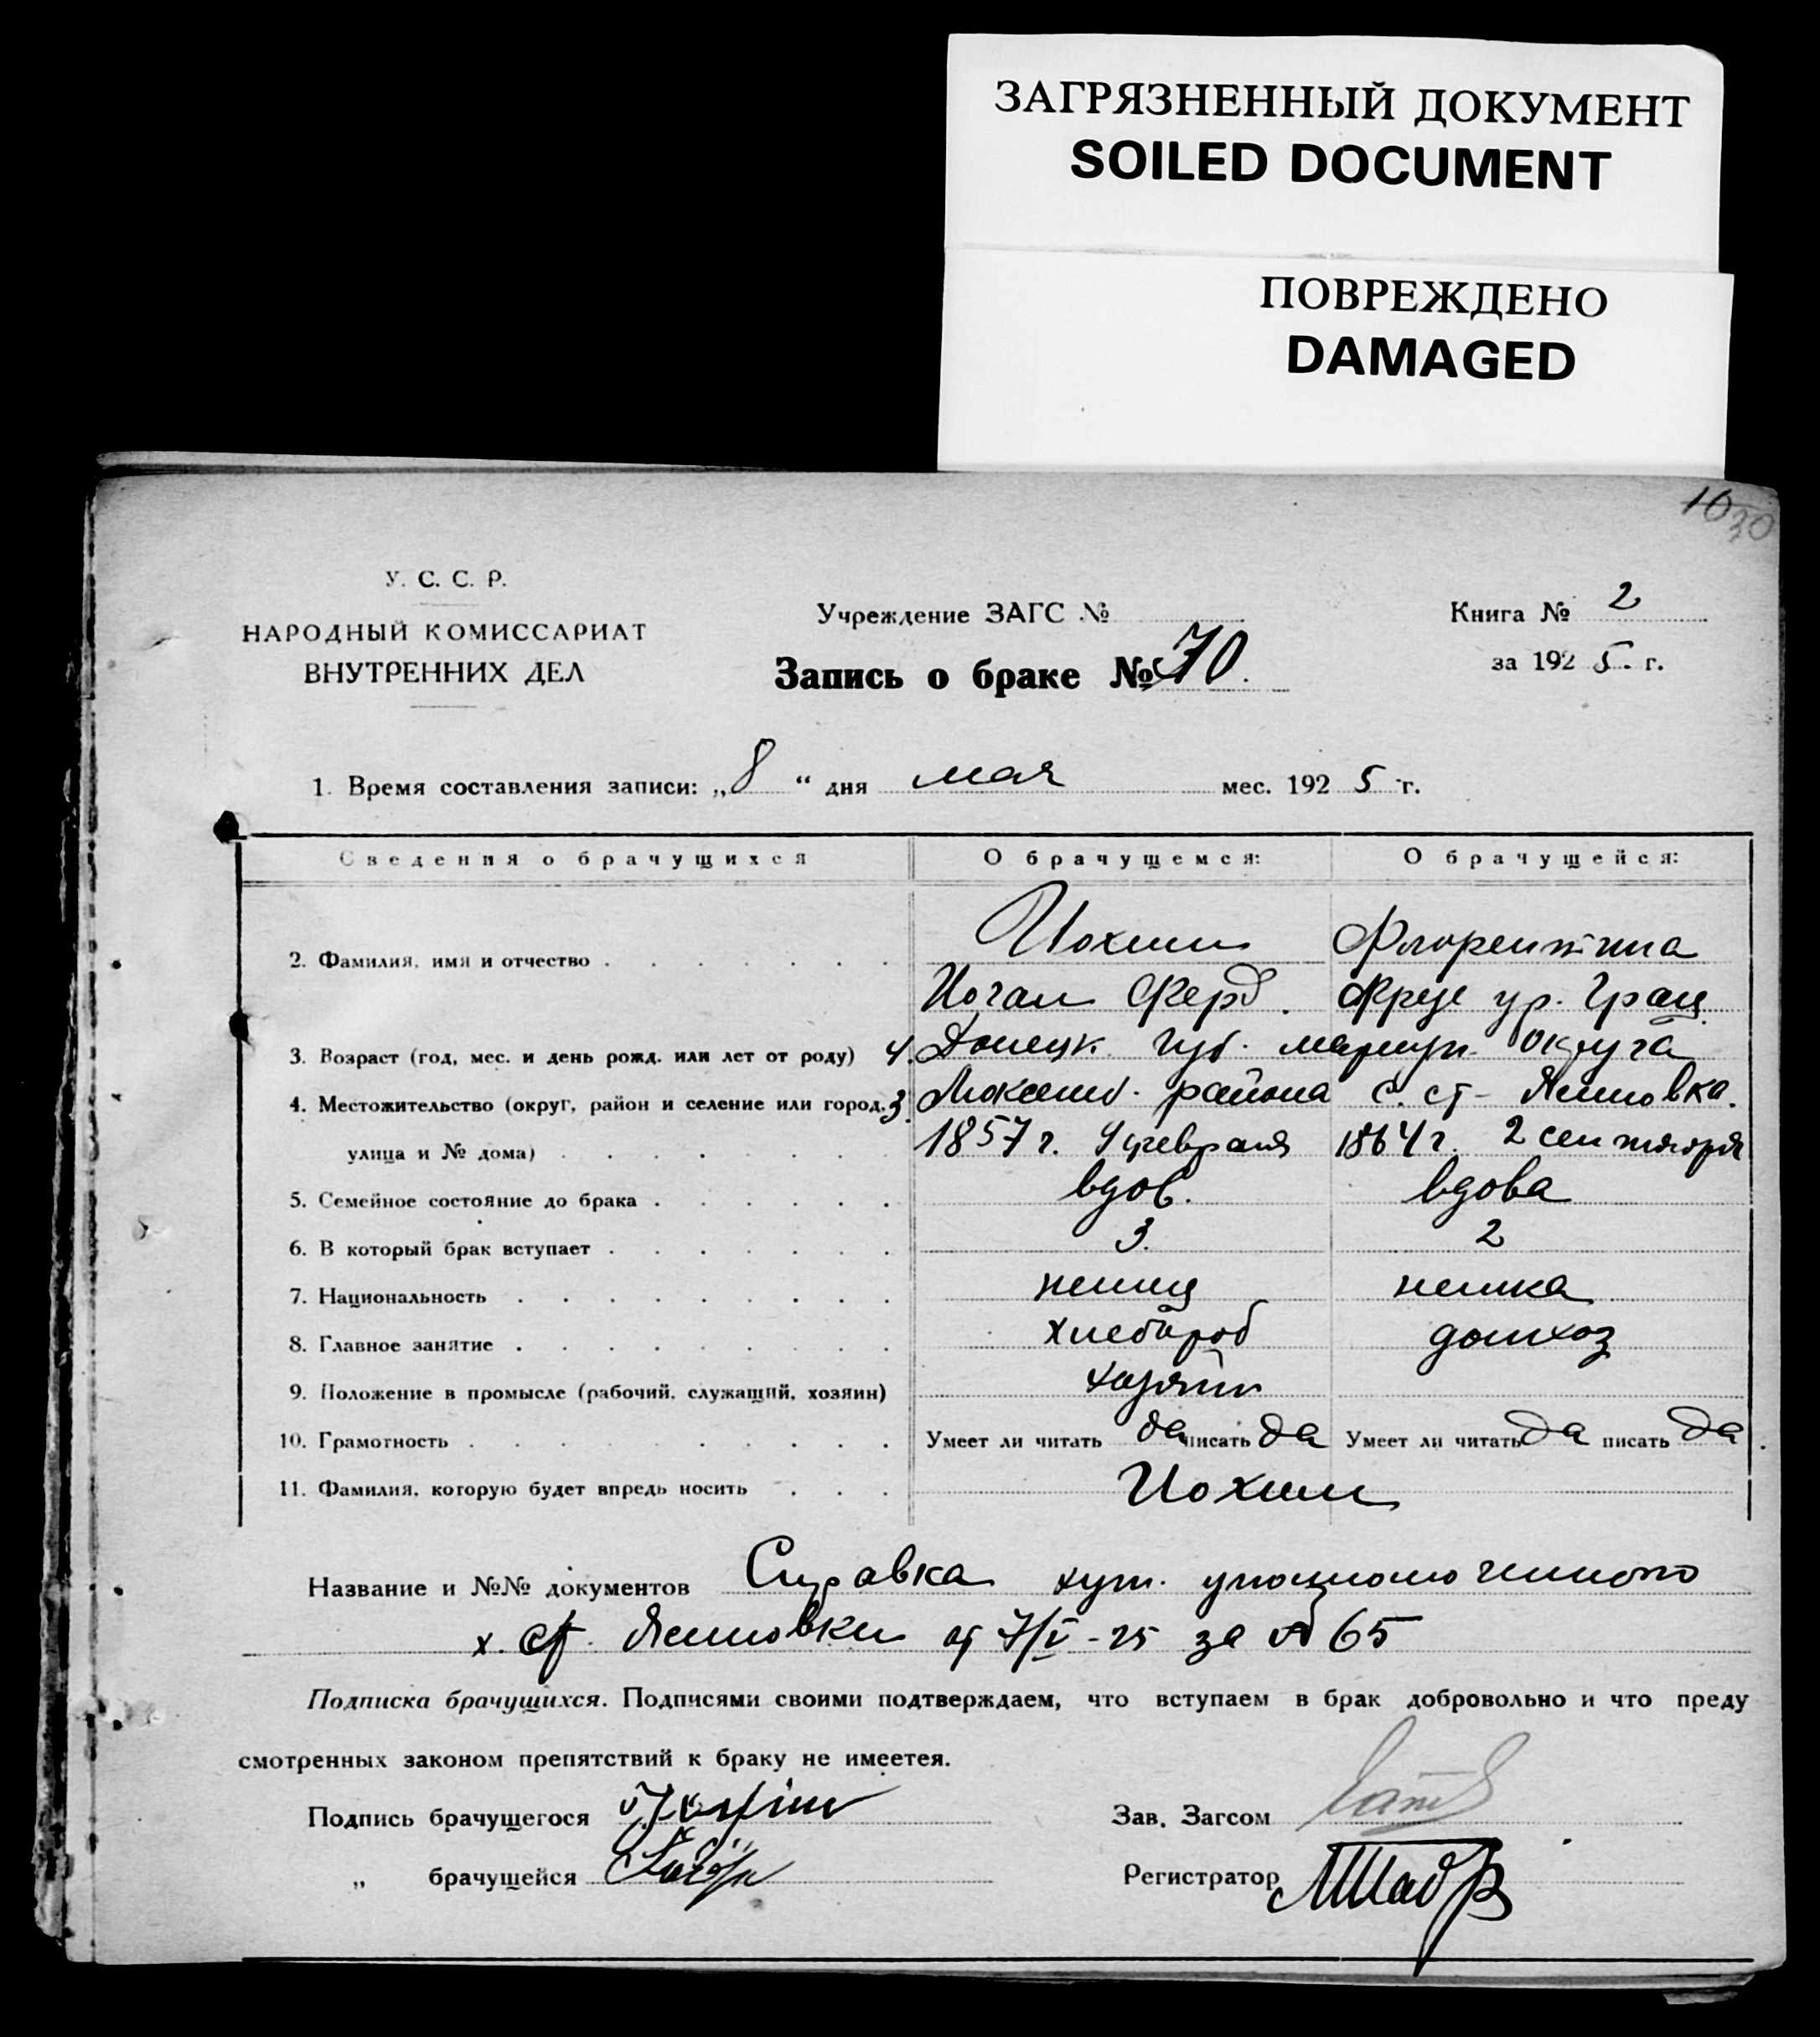 ЗАГРЯЗНЕННЫЙ ДОКУМЕНТ
SOILED DOCUMENT
ПОВРЕЖДЕНО
DAMAGED
10 30
У. С. С. Р.
НАРОДНЫЙ КОМИССАРИАТ
ВНУТРЕННИХ ДЕЛ
Учреждение ЗАГС №
Запись о браке № 70.
Книга № 2
за 1925. г.
1. Время составления записи: „8“ дня мая мес. 1925 г.
Сведения о брачущихся О брачущемся: О брачущейся:
2. Фамилия, имя и отчество Иохим Флорентина
Иоган Ферд. Фрец ур. Грац
3. Возраст (год, мес. и день рожд. или лет от роду) 4. Донецк. губ. мариуп. округа
4. Местожительство (округ, район и селение или город, 3. района с. ст- Ясиновка.
улица и № дома) 1857 г. 4 февраля 1864 г. 2 сентября
5. Семейное состояние до брака вдов. вдова
6. В который брак вступает 3. 2
7. Национальность немец немка
8. Главное занятие хлебороб домхоз
9. Положение в промысле (рабочий, служащий, хозяин) хозяин
10. Грамотность Умеет ли читать да писать да Умеет ли читать да писать да
11. Фамилия, которую будет впредь носить Иохим
Название и №№ документов Справка хут. уполномоченного
х. ст. Ясиновки от 7/V-25 за № 65
Подписка брачущихся. Подписями своими подтверждаем, что вступаем в брак добровольно и что преду
смотренных законом препятствий к браку не имеетея.
Подпись брачущегося Зав. Загсом
„ брачущейся Регистратор